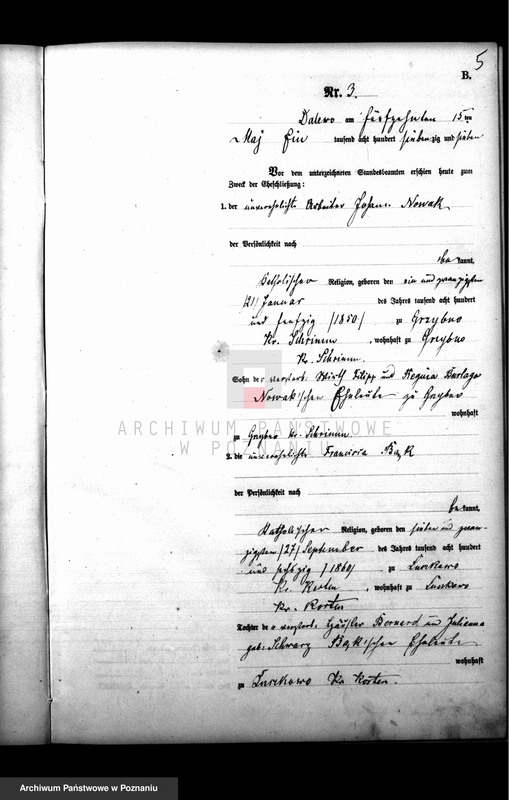 5
B.
Nr. 3.
Dalewo am fünfzehnten 15ten
Maj Ein tausend acht hundert siebenzig und sieben
Vor dem unterzeichneten Standesbeamten erschien heute zum
Zweck der Eheschließung:
1. der unverehelichte Arbeiter Johann Nowak
der Persönlichkeit nach
be kannt,
Katholischer Religion, geboren den ein und zwanzigsten
/21/ Januar des Jahres tausend acht hundert
und fünfzig /1850/ zu Grzybno
Kr. Schrimm, wohnhaft zu Grzybno
Kr. Schrimm.
Sohn der verstorb. Wirth Filipp und Regina
Nowak'schen Eheleute zu Grzybno
wohnhaft
zu Grzybno Kr. Schrimm
2. die unverehelichte Francisca Bąk
der Persönlichkeit nach
be kannt,
Katholischer Religion, geboren den sieben und zwan-
zigsten /27/ September des Jahres tausend acht hundert
und sechzig /1860/ zu
Kr. Kosten, wohnhaft zu
Kr. Kosten
Tochter der verstorb. Häusler Bernard und Julianna
geb. Schwarz Bąk'schen Eheleute
wohnhaft
zu Kr. Kosten.
ARCHIWUM PAŃSTWOWE
W POZNANIU
Archiwum Państwowe w Poznaniu